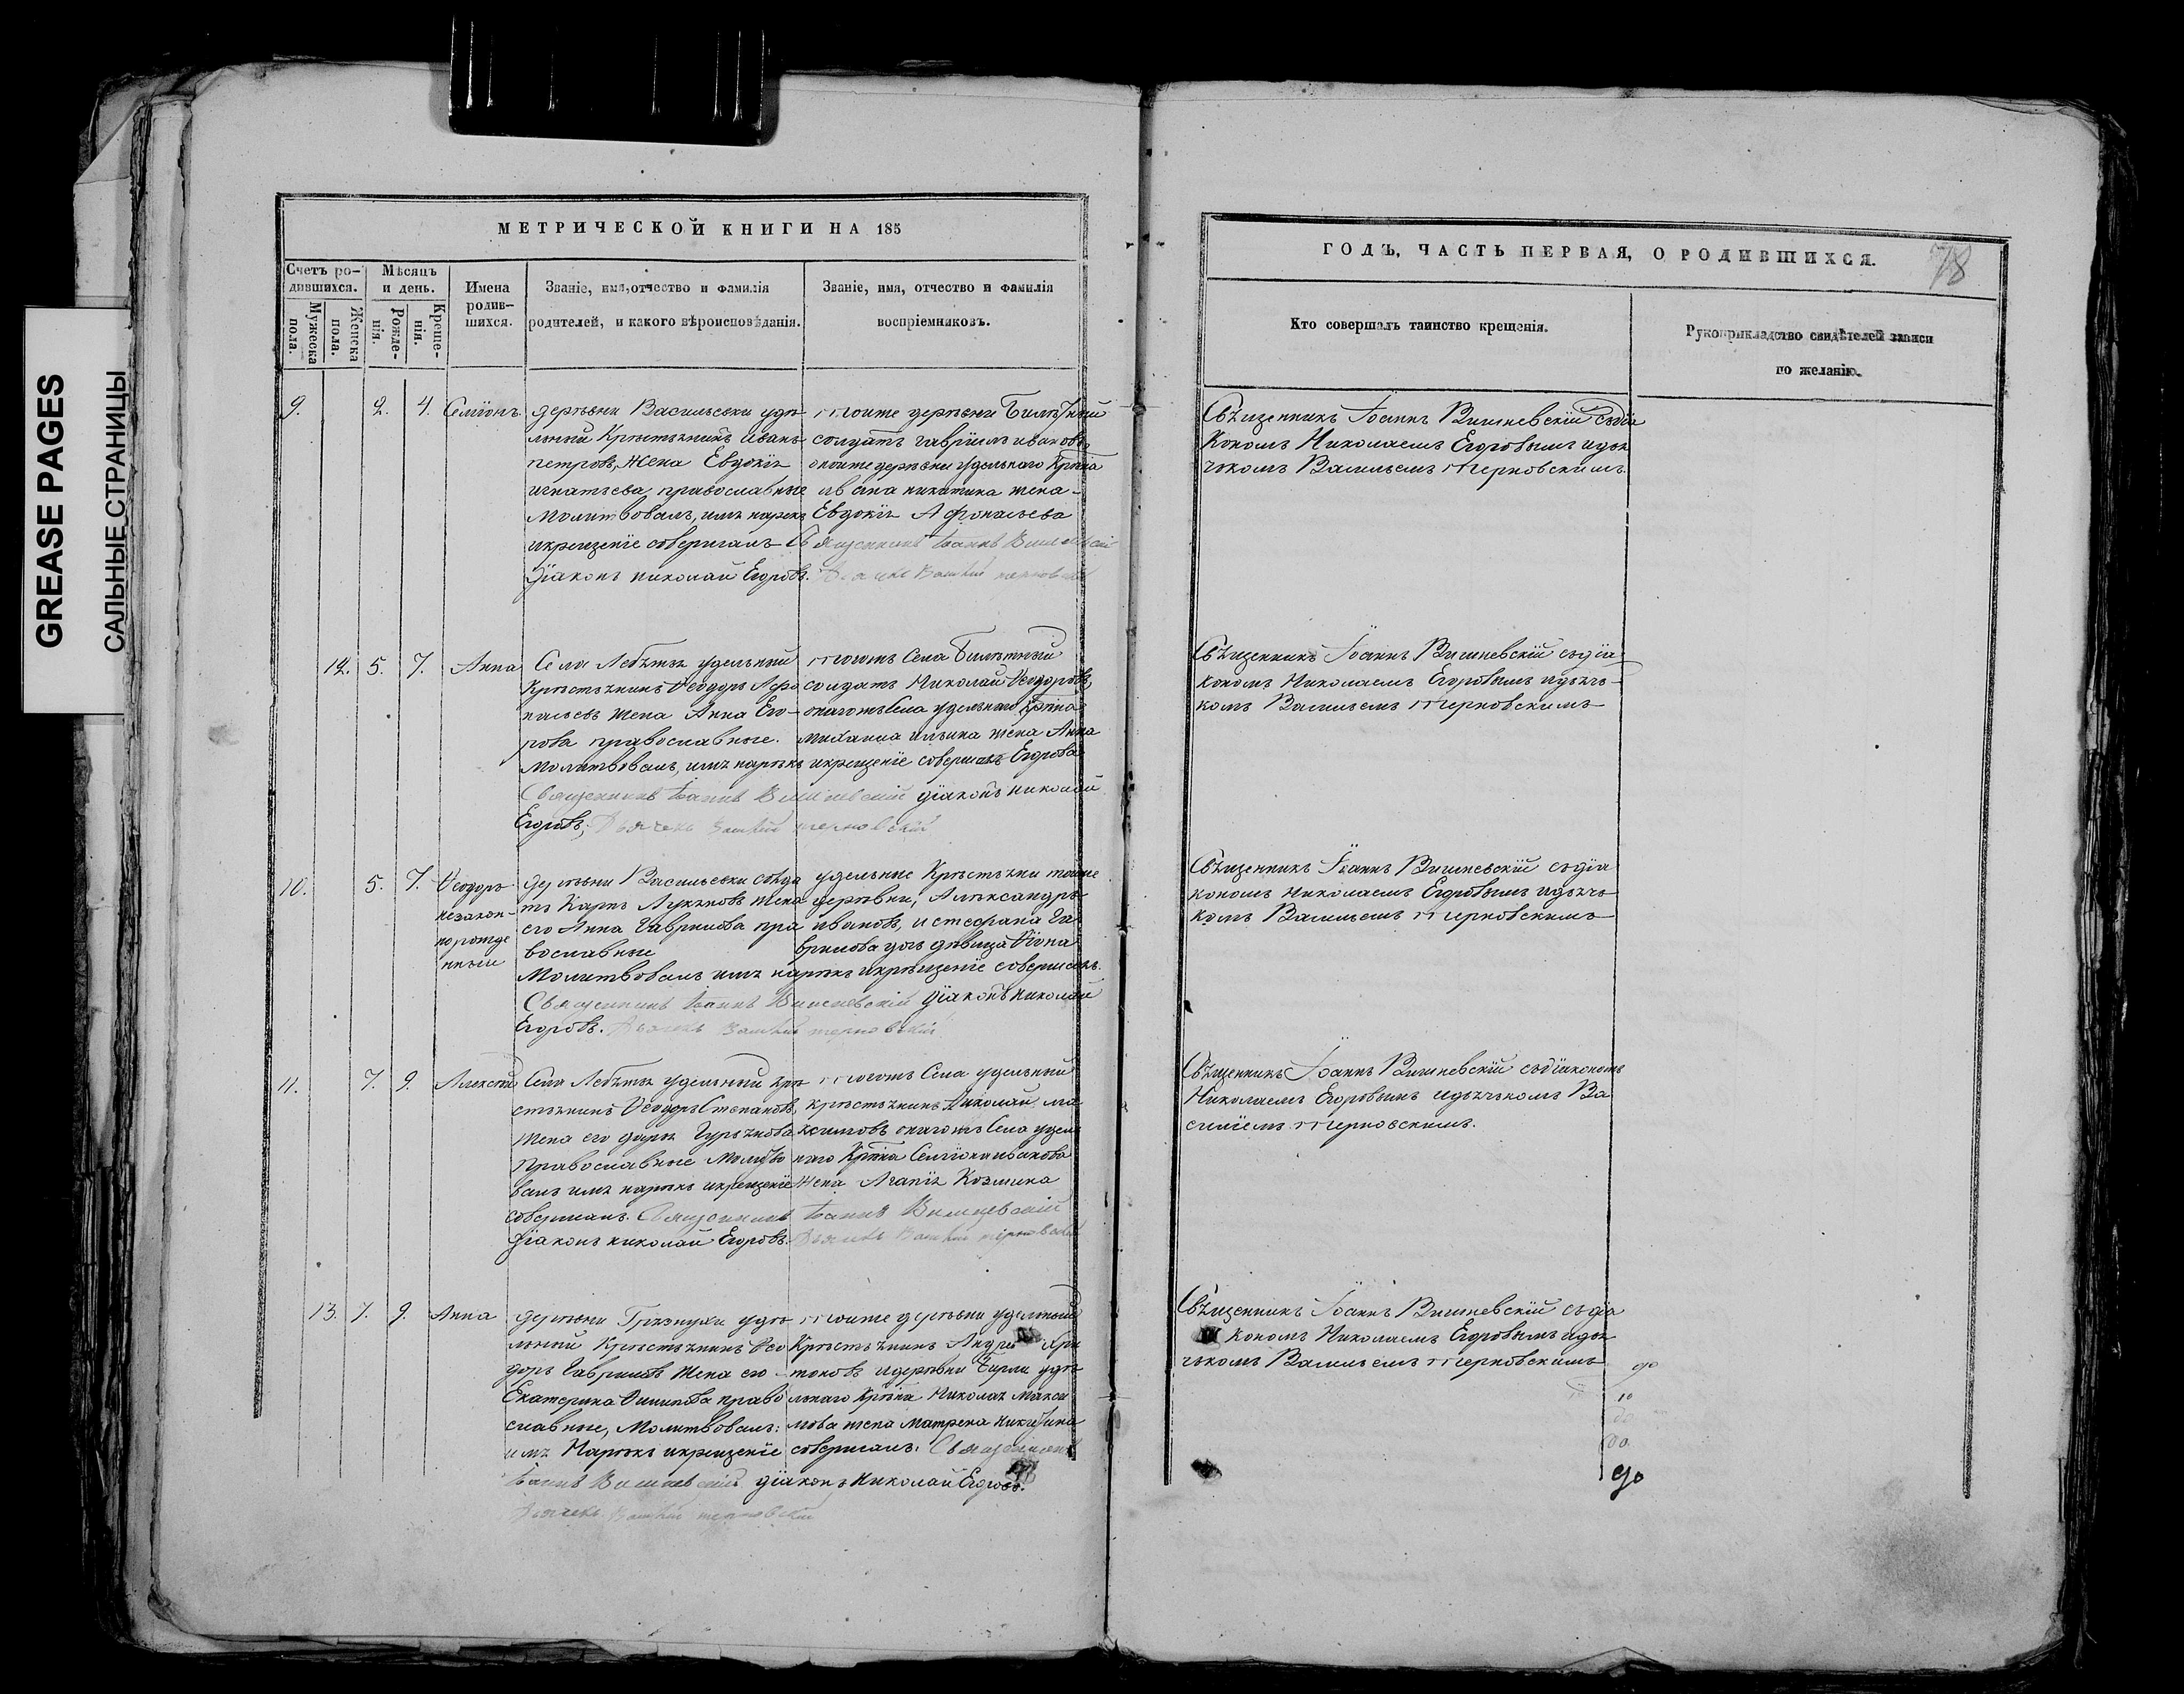 GREASE PAGES
САЛЬНЫЕ СТРАНИЦЫ
МЕТРИЧЕСКОЙ КНИГИ НА 185
Счетъ ро-
дившихся.
Мужеска пола.
Женска пола.
Мѣсяцъ
и день.
Рожде-
нія.
Креще-
нія.
Имена
родив-
шихся.
Званіе, имя, отчество и фамилія
родителей, и какого вѣроисповѣданія.
Званіе, имя, отчество и фамилія
воспріемниковъ.
9. 2. 4. Семіонъ
деревни Васильевки удѣ
льный Крестьянинъ Иванъ
петровъ, Жена Евдокія
игнатьева православные
Молитвовалъ, имя нарекъ
икрещеніе совершалъ Священникъ Іоаннъ Вишневскій
Діаконъ николай Егоровъ. Дьячекъ Василій терновскій
тоиже деревни Билѣтный
солдатъ гаврилъ ивановъ,
оноиже деревни удельнаго Крѣна
ивана никитина жена
Евдокія Афонасьева
12. 5. 7. Анна
Села Лебяжья удельный
Крестьянинъ Ѳеодоръ Афо
насьевъ жена Анна Его-
рова православные.
Молитвовалъ, имя нарекъ икрещеніе совершалъ
Священникъ Іоаннъ Вишневскій діаконъ николай
Егоровъ, Дьячекъ Василій терновскій
тогожъ Села Билѣтный
солдатъ Николай Ѳеодоровъ,
онагожъ Села удельнаго Крѣна
михаила ильина жена Анна
Егорова
10. 5. 7. Ѳеодоръ
незакон-
норожде
нныи
деревни Васильевки солда
тъ Карпъ Лукьяновъ жена
его Анна Гаврилова пра
вославные
Молитвовалъ имя нарекъ икрещеніе совершалъ.
Священникъ Іоаннъ Вишневскій Діаконъ николай
Егоровъ. Дьячекъ Василій терновскій
удельные Крестьяни тоиже
деревни, Александръ
ивановъ, и стефана Га
врилова дочь дѣвица
11. 7. 9. Алексѣй
Села Лебяжья удельный кре
стьянинъ Ѳеодоръ Степановъ,
жена его дарья Гурьянова
Православные Молитво
валъ имя нарекъ икрещеніе
совершалъ. Священникъ Іоаннъ Вишневскій
Діаконъ николай Егоровъ. Дьячекъ Василій терновскій
тогожъ Села удельный
крестьянинъ Николай ма
ксимовъ онагожъ Села удель
наго Крѣна Семіона иванова
жена Агапія Козмина
13. 7. 9. Анна
деревни Грязнухи удѣ
льный Крестьянинъ Ѳео
доръ Гавриловъ Жена его
Екатерина Филипова право
славные, Молитвовалъ:
имя Нарекъ икрещеніе совершалъ: Священникъ
Іоаннъ Вишневскій діаконъ Николай Егоровъ.
Дьячекъ Василій терновскій
тоиже деревни удельный
Крестьянинъ Андрей Хари
тоновъ идеревни Бирли удѣ
льнаго Крѣна Николая Макси
мова жена матрена никитина
ГОДЪ, ЧАСТЬ ПЕРВАЯ, О РОДИВШИХСЯ.
78
Кто совершалъ таинство крещенія.
Рукоприкладство свидѣтелей записи
по желанію.
Священникъ Іоаннъ Вишневскій съдіа
кономъ Николаемъ Егоровымъ идья
чкомъ Васильемъ терновскимъ.
Священникъ Іоаннъ Вишневскій съдіа
кономъ Николаемъ Егоровымъ идьяч-
комъ Васильемъ терновскимъ
Священникъ Іоаннъ Вишневскій съдіа
кономъ николаемъ Егоровымъ идьяч
комъ Васильемъ терновскимъ
Священникъ Іоаннъ Вишневскій съдіакономъ
Николаемъ Егоровымъ идьячькомъ Ва
силіемъ терновскимъ.
Священникъ Іоаннъ Вишневскій съдіа
кономъ Николаемъ Егоровымъ идья
чькомъ Васильемъ терновскимъ